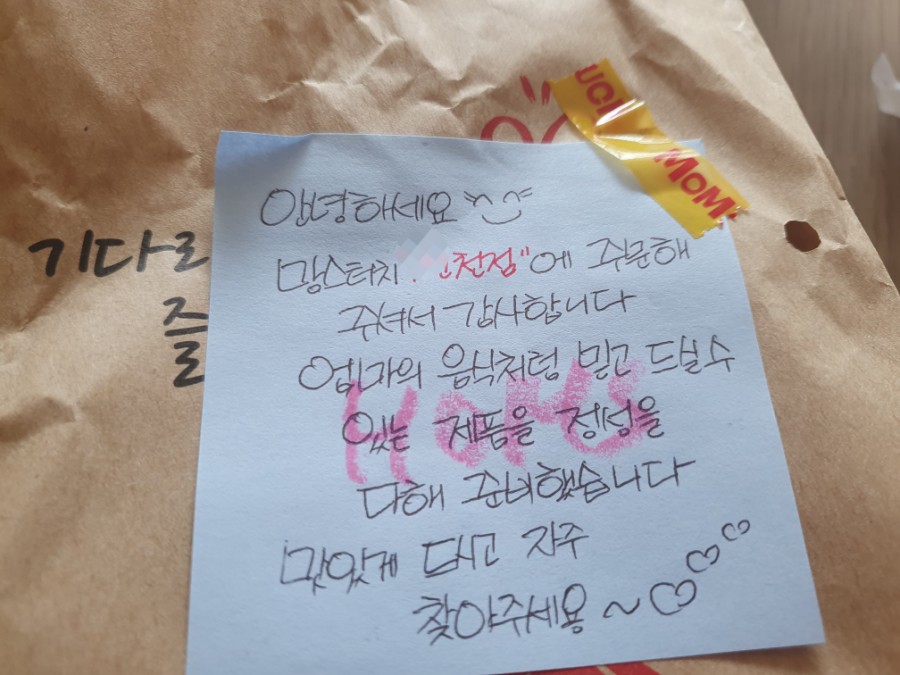 UCH
MOM'
안녕하세요
기다
맘스터치 천점"에 주문해
즐
주셔서 감사합니다
엄마의 음식처럼 믿고 드실수
있는 제품을 정성을
다해 준비했습니다
맛있게 드시고 자주
찾아주세용 ~ ♡♡♡